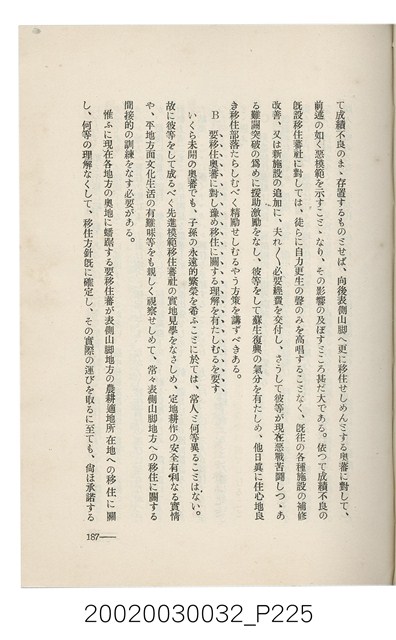 て成績不良のまゝ存置するものとせば、向後表側山脚へ更に移住せしめんとする奧蕃に對して、
前述の如く惡模範を示すこととなり、その影響の及ぼすところ甚だ大である。依つて成績不良の
既設移住蕃社に對しては、徒らに自力更生の聲のみを高唱することなく、既往の各種施設の補修
改善、又は新施設の追加に、夫れ〲必要經費を交付し、さうして彼等が現在惡戰苦鬪しつゝあ
る難關突破の爲めに援助激勵をなし、彼等をして蘇生復興の氣分を有たしめ、他日眞に住心地良
き移住部落たらしむべく精勵せしむるやう方策を講ずべきある。
B 要移住奧蕃に對し豫め移住に關する理解を有たしむるを要す
いくら未開の奧蕃でも、子孫の永遠的繁榮を希ふことに於ては、常人と何等異ることはない。
故に彼等をして成るべく先進模範移住蕃社の實地見學をなさしめ、定地耕作の安全有利なる實情
や、平地方面文化生活の有難味等をも親しく視察せしめて、常々表側山脚地方への移住に關する
間接的の訓練をなす必要がある。
惟ふに現在各地方の奧地に蟠踞する要移住蕃が表側山脚地方の農耕適地所在地への移住に關
し、何等の理解なくして、移住方針既に確定し、その實際の運びを取るに至ても、尙ほ承諾する
187
20020030032_P225